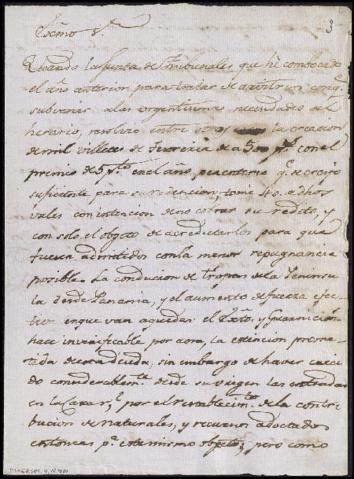 3
Exmo Sr.
Quando la Junta de Tribunales que he convocado
el año anterior para tratar de con que
subvenir a las urgentisimas necesidades del
herario, resolvió entre otras la creacion
de mil villetes de Tesoreria de a 500 ps. con el
premio de 5 pto. en el año, pasatiempo q. se creyó
suficiente para su redencion, tomé 40. a dhos
vales con intencion de no cobrar su redito, y
con solo el objeto de acreditarlos para que
fuesen admitidos con la menor repugnancia
posible. La conducion de tropas de la Peninsu
la desde Panamá, y el aumento de fuerza efec
tiva en que van a quedar el Exto. y Guarnicion
hace inverificable por aora, la extincion prome
tida de esta deuda, sin embargo de haver creci
do considerablemte. desde su origen las entradas
en las caxas Rs. por el restablecimto. de la contri
bucion de naturales, y recursos adoctados
entonces pa. este mismo objeto; pero como